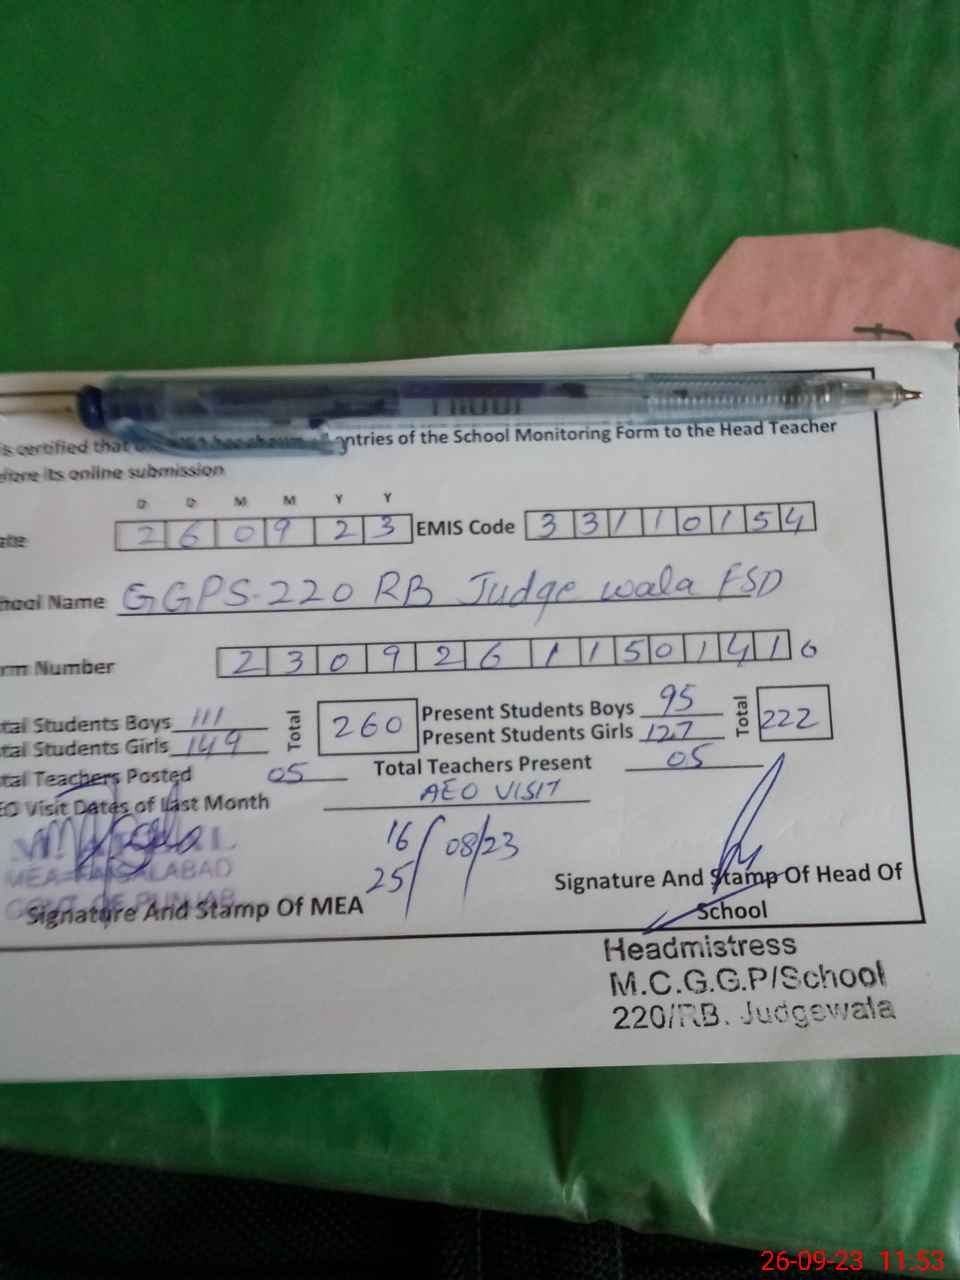 entries of the School Monitoring Form to the Head Teacher
its online submission
D D M M Y Y
2 6 0 9 2 3 EMIS Code 3 3 1 1 0 1 5 4
School Name GGPS-220 RB Judge wala FSD
Form Number 2 3 0 9 2 6 1 1 5 0 1 4 1 6
Total Students Boys 111 Total 260 Present Students Boys 95 Total 222
Total Students Girls 149 Present Students Girls 127
Total Teachers Posted 05 Total Teachers Present 05
AEO Visit Dates of Last Month AEO VISIT
16 / 08/23
25
MEA FAISALABAD
GOVT. OF PUNJAB
Signature And Stamp Of MEA
Signature And Stamp Of Head Of
School
Headmistress
M.C.G.G.P/School
220/RB. Judgewala
26-09-23 11:53